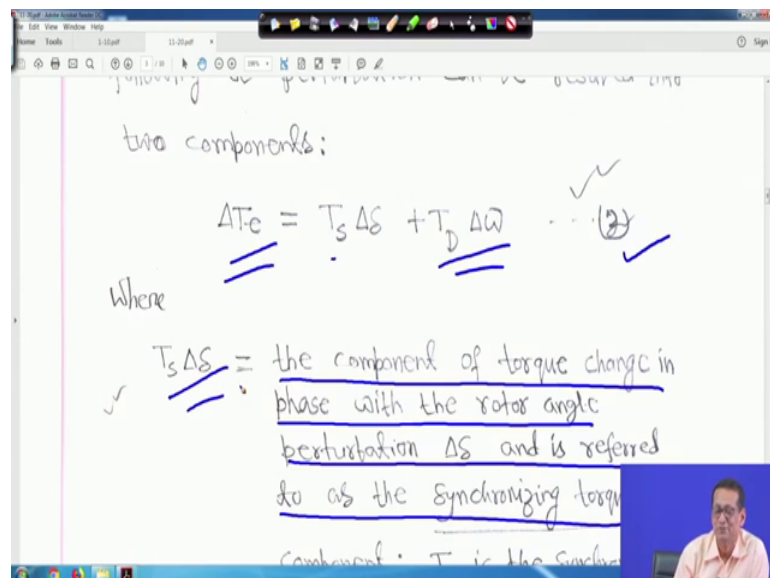 11-20.pdf - Adobe Acrobat Reader DC
File Edit View Window Help
Home Tools 1-10.pdf 11-20.pdf × Sign
following a perturbation can be resolved into
two components:
ΔTe = T_S Δδ + T_D Δω --- (2)
Where
T_S Δδ = the component of torque change in
phase with the rotor angle
perturbation Δδ and is referred
to as the synchronizing torque
component. T_S is the